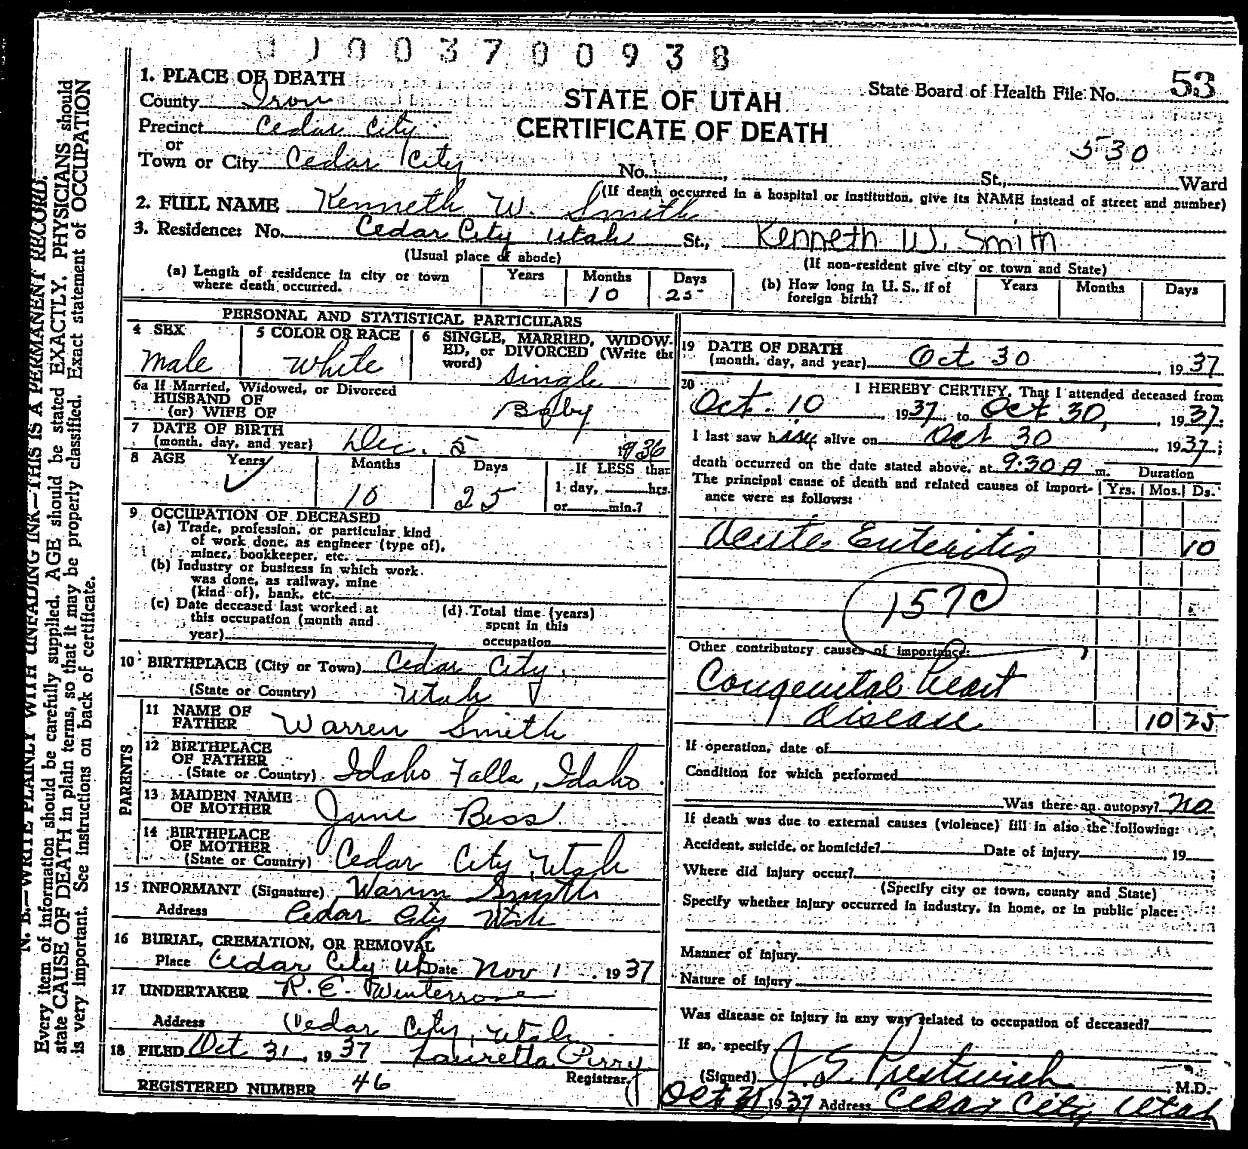 003700938
1. PLACE OF DEATH
County Iron
STATE OF UTAH
State Board of Health File No. 53
Precinct Cedar City
CERTIFICATE OF DEATH
or
530
Town or City Cedar City No. St., Ward
(If death occurred in a hospital or institution, give its NAME instead of street and number)
2. FULL NAME Kenneth W. Smith
3. Residence: No. Cedar City Utah St., Kenneth W. Smith
(Usual place of abode) (If non-resident give city or town and State)
(a) Length of residence in city or town where death occurred. Years Months 10 Days 25
(b) How long in U. S., if of foreign birth? Years Months Days
PERSONAL AND STATISTICAL PARTICULARS
4 SEX Male
5 COLOR OR RACE White
6 SINGLE, MARRIED, WIDOWED, or DIVORCED (Write the word) Single
6a If Married, Widowed, or Divorced
HUSBAND OF
(or) WIFE OF Baby
7 DATE OF BIRTH
(month, day, and year) Dec. 5 1936
8 AGE Years Months 10 Days 25
If LESS than
1 day, hrs.
or min.?
9 OCCUPATION OF DECEASED
(a) Trade, profession, or particular kind
of work done, as engineer (type of),
miner, bookkeeper, etc.
(b) Industry or business in which work
was done, as railway, mine
(kind of), bank, etc.
(c) Date deceased last worked at
this occupation (month and
year)
(d) Total time (years)
spent in this
occupation
10 BIRTHPLACE (City or Town) Cedar City,
(State or Country) Utah
PARENTS
11 NAME OF
FATHER Warren Smith
12 BIRTHPLACE
OF FATHER
(State or Country) Idaho Falls, Idaho
13 MAIDEN NAME
OF MOTHER June Bess
14 BIRTHPLACE
OF MOTHER
(State or Country) Cedar City, Utah
15 INFORMANT (Signature) Warren Smith
Address Cedar City Utah
16 BURIAL, CREMATION, OR REMOVAL
Place Cedar City Ut Date Nov 1 1937
17 UNDERTAKER R. E. Winterrose
Address Cedar City, Utah
18 FILED Oct 31, 1937 Lauretta Perry
Registrar.
REGISTERED NUMBER 46
19 DATE OF DEATH
(month, day, and year) Oct 30, 1937
20 I HEREBY CERTIFY, That I attended deceased from
Oct. 10, 1937 to Oct 30, 1937.
I last saw him alive on Oct 30 1937;
death occurred on the date stated above, at 9:30 A m. Duration
The principal cause of death and related causes of importance were as follows: Yrs. Mos. Ds.
Acute Enteritis 10
157C
Other contributory causes of importance:
Congenital heart
disease 10 25
If operation, date of
Condition for which performed
Was there an autopsy? no
If death was due to external causes (violence) fill in also the following:
Accident, suicide, or homicide? Date of injury, 19
Where did injury occur?
(Specify city or town, county and State)
Specify whether injury occurred in industry, in home, or in public place:
Manner of Injury
Nature of Injury
Was disease or injury in any way related to occupation of deceased?
If so, specify
(Signed) J. S. Prestwich M.D.
Oct 31 1937 Address Cedar City Utah
N. B.—WRITE PLAINLY WITH UNFADING INK—THIS IS A PERMANENT RECORD.
Every item of information should be carefully supplied. AGE should be stated EXACTLY. PHYSICIANS should
state CAUSE OF DEATH in plain terms, so that it may be properly classified. Exact statement of OCCUPATION
is very important. See instructions on back of certificate.